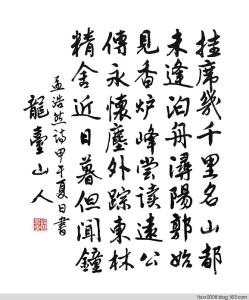 挂席幾千里名山都
未逢泊舟潯陽郭始
見香炉峰尝读遠公
傳永懷塵外踪東林
精舍近日暮但闻鐘
孟浩然詩甲午夏日書
龍臺山人
ltsxr2008.blog.163.com